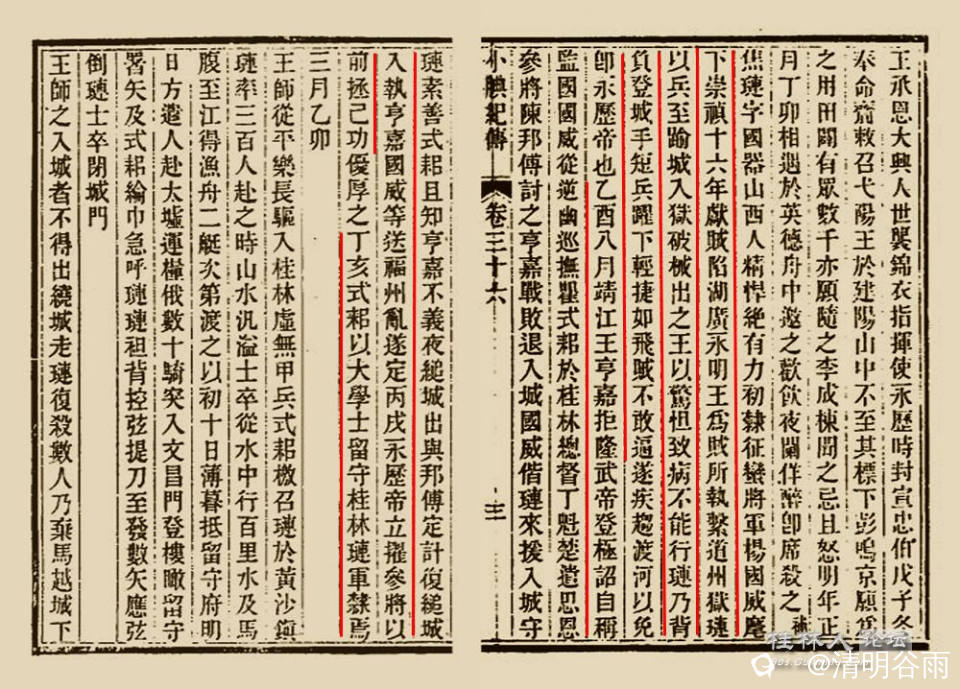 王承恩大興人世襲錦衣指揮使永歷時封宣忠伯戊子冬
奉命齎敕召弋陽王於建陽山中不至其標下彭鳴京願爲
之用田闢有眾數千亦願隨之李成棟聞之忌且怒明年正
月丁卯相遇於英德舟中邀之歡飲夜闌佯醉卽席殺之
焦璉字國器山西人精悍絶有力初隸征蠻將軍楊國威麾
下崇禎十六年獻賊陷湖廣永明王爲賊所執繫道州獄璉
以兵至踰城入獄破械出之王以驚怛致病不能行璉乃背
負登城手短兵躍下輕捷如飛賊不敢逼遂疾趨渡河以免
卽永歷帝也乙酉八月靖江王亨嘉拒隆武帝登極詔自稱
監國國威從逆幽巡撫瞿式耜於桂林總督丁魁楚遣思恩
參將陳邦傅討之亨嘉戰敗退入城國威偕璉來援入城守
小腆紀傳 卷三十六
璉素善式耜且知亨嘉不義夜縋城出與邦傅定計復縋城
入執亨嘉國威等送福州亂遂定丙戌永歷帝立擢參將以
前拯己功優厚之丁亥式耜以大學士留守桂林璉軍隸焉
三月乙卯
王師從平樂長驅入桂林虛無甲兵式耜檄召璉於黃沙鎭
璉率三百人赴之時山水汎溢士卒從水中行百里水及馬
腹至江得漁舟二艇次第渡之以初十日薄暮抵留守府明
日方遣人赴太墟運糧俄數十騎突入文昌門登樓瞰留守
署矢及式耜綸巾急呼璉璉袒背控弦提刀至發數矢應弦
倒璉士卒閉城門
王師之入城者不得出繞城走璉復殺數人乃棄馬越城下
桂林人論壇
@清明谷雨